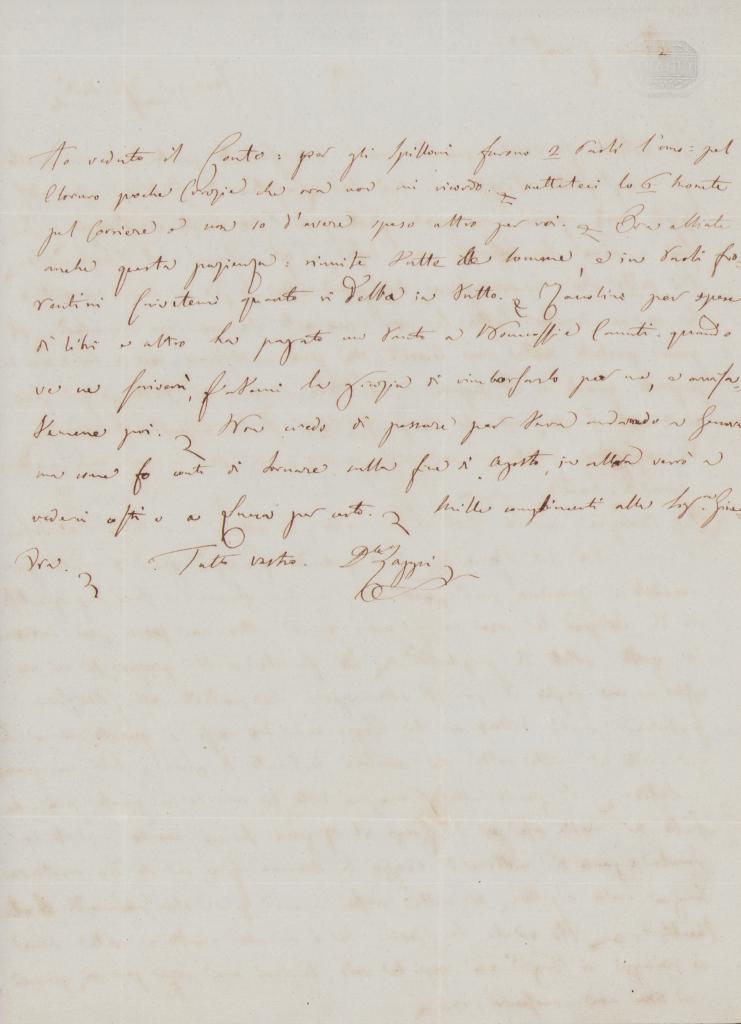 Ho veduto il Conto: per gli spilloni furono 2 Paoli l'uno: pel
Cloruro poche Crazie che ora non mi ricordo. metteteci lo 6 monete
pel Corriere e non so d'avere speso altro per voi. Ora abbiate
anche questa pazienza: riunite tutte le somme, e in Paoli fio-
rentini scrivetemi quanto vi debbo in tutto. per spese
di libri e altro ha pagato un tanto a quando
ve ne scriverà, fatemi la grazia di rimborsarlo per me, e avvisa-
temene poi. Non credo di passare per andando a Genova
ma come fo conto di tornare sulla fine di Agosto, in allora verrò a
vedervi costì e a per certo. Mille complimenti alla Sig.ra Gine-
vra. Tutto vostro. Zappi